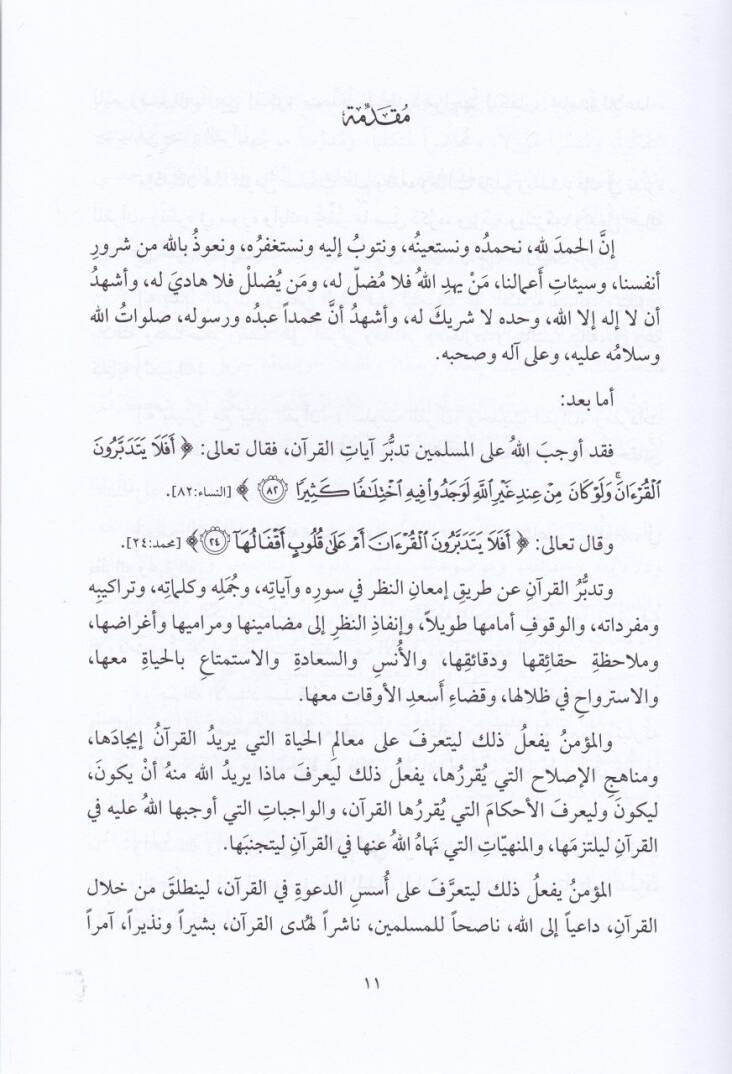 مُقَدِّمَة
إنَّ الحمدَ لله، نحمدُه ونستعينُه، ونتوبُ إليه ونستغفرُه، ونعوذُ بالله من شرورِ
أنفسنا، وسيئاتِ أعمالنا، مَنْ يهدِ اللهُ فلا مُضلّ له، ومَن يُضللْ فلا هاديَ له، وأشهدُ
أن لا إله إلا الله، وحده لا شريكَ له، وأشهدُ أنَّ محمداً عبدُه ورسوله، صلواتُ الله
وسلامُه عليه، وعلى آله وصحبه.
أما بعد:
فقد أوجبَ اللهُ على المسلمين تدبُّرَ آياتِ القرآن، فقال تعالى: ﴿ أَفَلَا يَتَدَبَّرُونَ
الْقُرْءَانَ ۚ وَلَوْ كَانَ مِنْ عِندِ غَيْرِ اللَّهِ لَوَجَدُوا فِيهِ اخْتِلَافًا كَثِيرًا ٨٢ ﴾ [النساء:٨٢].
وقال تعالى: ﴿ أَفَلَا يَتَدَبَّرُونَ الْقُرْءَانَ أَمْ عَلَىٰ قُلُوبٍ أَقْفَالُهَا ٢٤ ﴾ [محمد:٢٤].
وتدبُّرُ القرآنِ عن طريقِ إمعانِ النظر في سورِه وآياتِه، وجُمَلِه وكلماتِه، وتراكيبِه
ومفرداته، والوقوفِ أمامها طويلاً، وإنفاذِ النظرِ إلى مضامينها ومراميها وأغراضها،
وملاحظةِ حقائقِها ودقائقِها، والأُنسِ والسعادةِ والاستمتاعِ بالحياةِ معها،
والاسترواحِ في ظلالها، وقضاءِ أَسعدِ الأوقات معها.
والمؤمنُ يفعلُ ذلك ليتعرفَ على معالمِ الحياة التي يريدُ القرآنُ إيجادَها،
ومناهجِ الإصلاح التي يُقررُها، يفعلُ ذلك ليعرفَ ماذا يريدُ الله منهُ أنْ يكونَ،
ليكونَ وليعرفَ الأحكامَ التي يُقررُها القرآن، والواجباتِ التي أوجبها اللهُ عليه في
القرآنِ ليلتزمَها، والمنهيّاتِ التي نَهاهُ اللهُ عنها في القرآنِ ليتجنبَها.
المؤمنُ يفعلُ ذلك ليتعرَّفَ على أُسسِ الدعوةِ في القرآن، لينطلقَ من خلال
القرآنِ، داعياً إلى الله، ناصحاً للمسلمين، ناشراً لهُدى القرآن، بشيراً ونذيراً، آمراً
١١